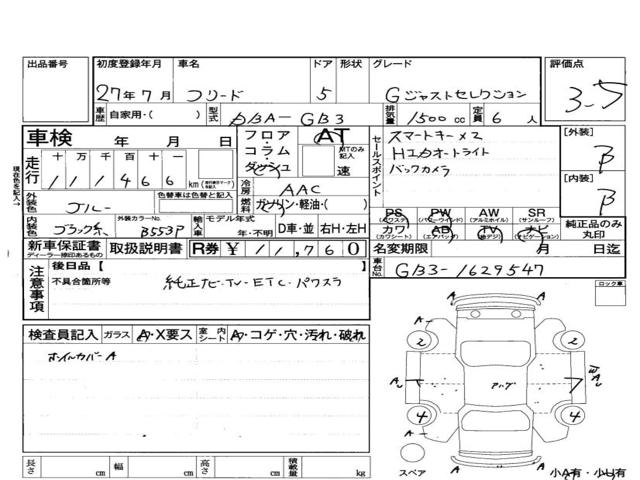 出品番号
初度登録年月
27年7月
車名
フリード
ドア
5
形状
グレード
Gジャストセレクション
評価点
3-5
車歴
自家用・( )
型式
DBA-GB3
排気量
1500 cc
定員
6 人
車検
年 月 日
フロア・
コラム・
ダッシュ
AT
MTのみ記入
速
セールスポイント
スマートキー×2
HIDオートライト
バックカメラ
[外装]
B
[内装]
B
現在色を記入→
走行
十 万 千 百 十 一
1 1 1 4 6 6 km
冷房
AAC
燃料
ガソリン・軽油・( )
外装色
ブルー
色替車は色替と記入
内装色
ブラック系
外装カラーNo.
B553P
輸入車
モデル年式
年・不明
D車・並
右H・左H
PS
(パワステ)
PW
(パワーウインド)
AW
(アルミホイル)
SR
(サンルーフ)
カワ
(カワシート)
AB
(エアバッグ)
TV
(地デジ)
ナビ
(ナビゲーション)
純正品のみ
丸印
新車保証書
ディーラー捺印あるもの
取扱説明書
R券 ¥ 11,760
名変期限
月 日迄
注意事項
後日品 [
]
不具合箇所等
純正ナビ・TV・ETC・パワスラ
車台No.
GB3-1629547
ロック車
検査員記入
ガラス
A・X要ス
室内シート
A・コゲ・穴・汚れ・破れ
ホイルカバーA
A
2
2
A
A
4
4
A
A
A
スペア
小A有・小U有
長さ cm
幅 cm
高さ cm
積載量 kg